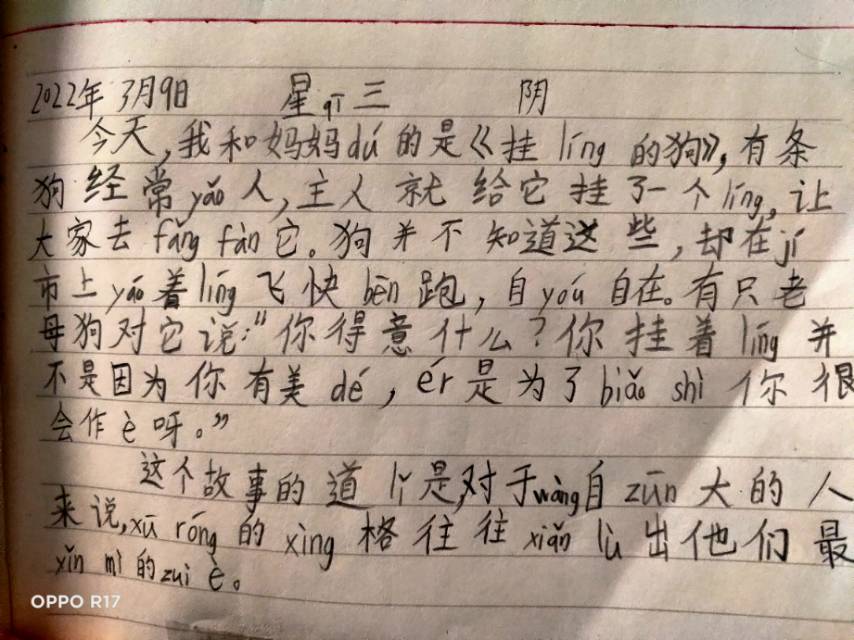 2022年3月9日 星qī三 阴
今天,我和妈妈dú的是《挂líng的狗》,有条
狗经常yǎo人,主人就给它挂了一个líng,让
大家去fáng fàn它。狗并不知道这些,却在jí
市上yáo着líng飞快bēn跑,自yóu自在。有只老
母狗对它说:"你得意什么?你挂着líng并
不是因为你有美dé,ér是为了biǎo shì你很
会作è呀。"
这个故事的道lǐ是,对于wàng自zūn大的人
来说,xū róng的xìng格往往xiǎn lù出他们最
yǐn mì的zuì è。
OPPO R17